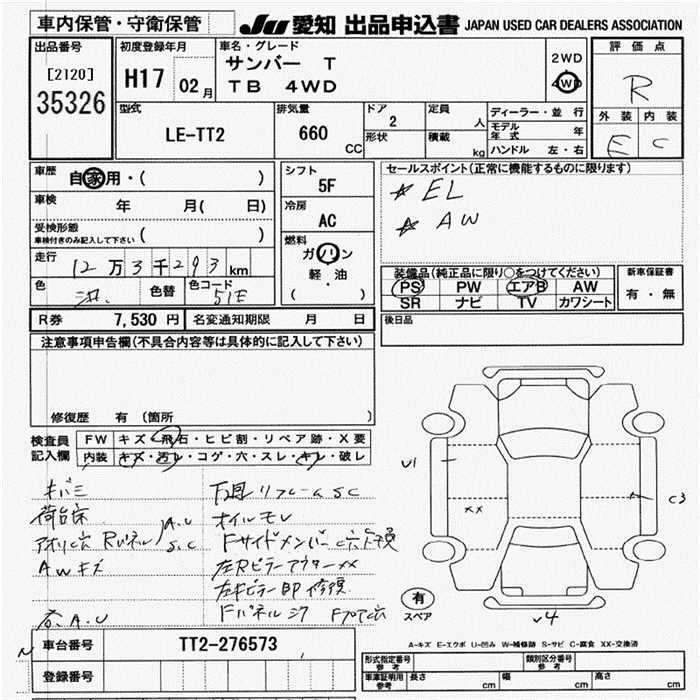 車内保管・守衛保管
JU 愛知 出品申込書 JAPAN USED CAR DEALERS ASSOCIATION
出品番号
[2120]
35326
初度登録年月
H17 02月
車名・グレード
サンバー T
TB 4WD
2WD
4WD
評価点
R
外装 内装
E C
型式
LE-TT2
排気量
660 CC
ドア
2
形状
定員 人
積載 kg
ディーラー・並行
モデル年式 年
ハンドル 左・右
車歴
自家用・( )
車検 年 月( 日)
受検形態
車検付きのみ記入して下さい ( )
走行 12万3千293km
色 色替 色コード 51E
シフト
5F
冷房
AC
燃料
ガソリン
軽・油
( )
セールスポイント(正常に機能するものに限ります)
☆ EL
☆ AW
装備品(純正品に限り○をつけてください)
PS PW エアB AW
SR ナビ TV カワシート
新車保証書
有・無
R券 7,530 円 名変通知期限 月 日
後日品
注意事項申告欄(不具合内容等は具体的に記入して下さい)
修復歴 有 (箇所 )
検査員記入欄
FW キズ・飛石・ヒビ割・リペア跡・X要
内装 キズ・汚レ・コゲ・穴・スレ・キレ・破レ
キバミ
荷台床 A.U
アオリ穴 Rパネル S.C
AWキズ
A.U
下廻リフレームSC
オイルモレ
Fサイドメンバー
左Rピラーアウターxx
Fパネル
U1
xx
C3
V4
有
スペア
A-キズ E-エクボ U-凹み W-補修跡 S-サビ C-腐食 XX-交換済
車台番号 TT2-276573
登録番号
形式指定番号 参考
類別区分番号 参考
車庫証明用 参考 長さ cm 幅 cm 高さ cm